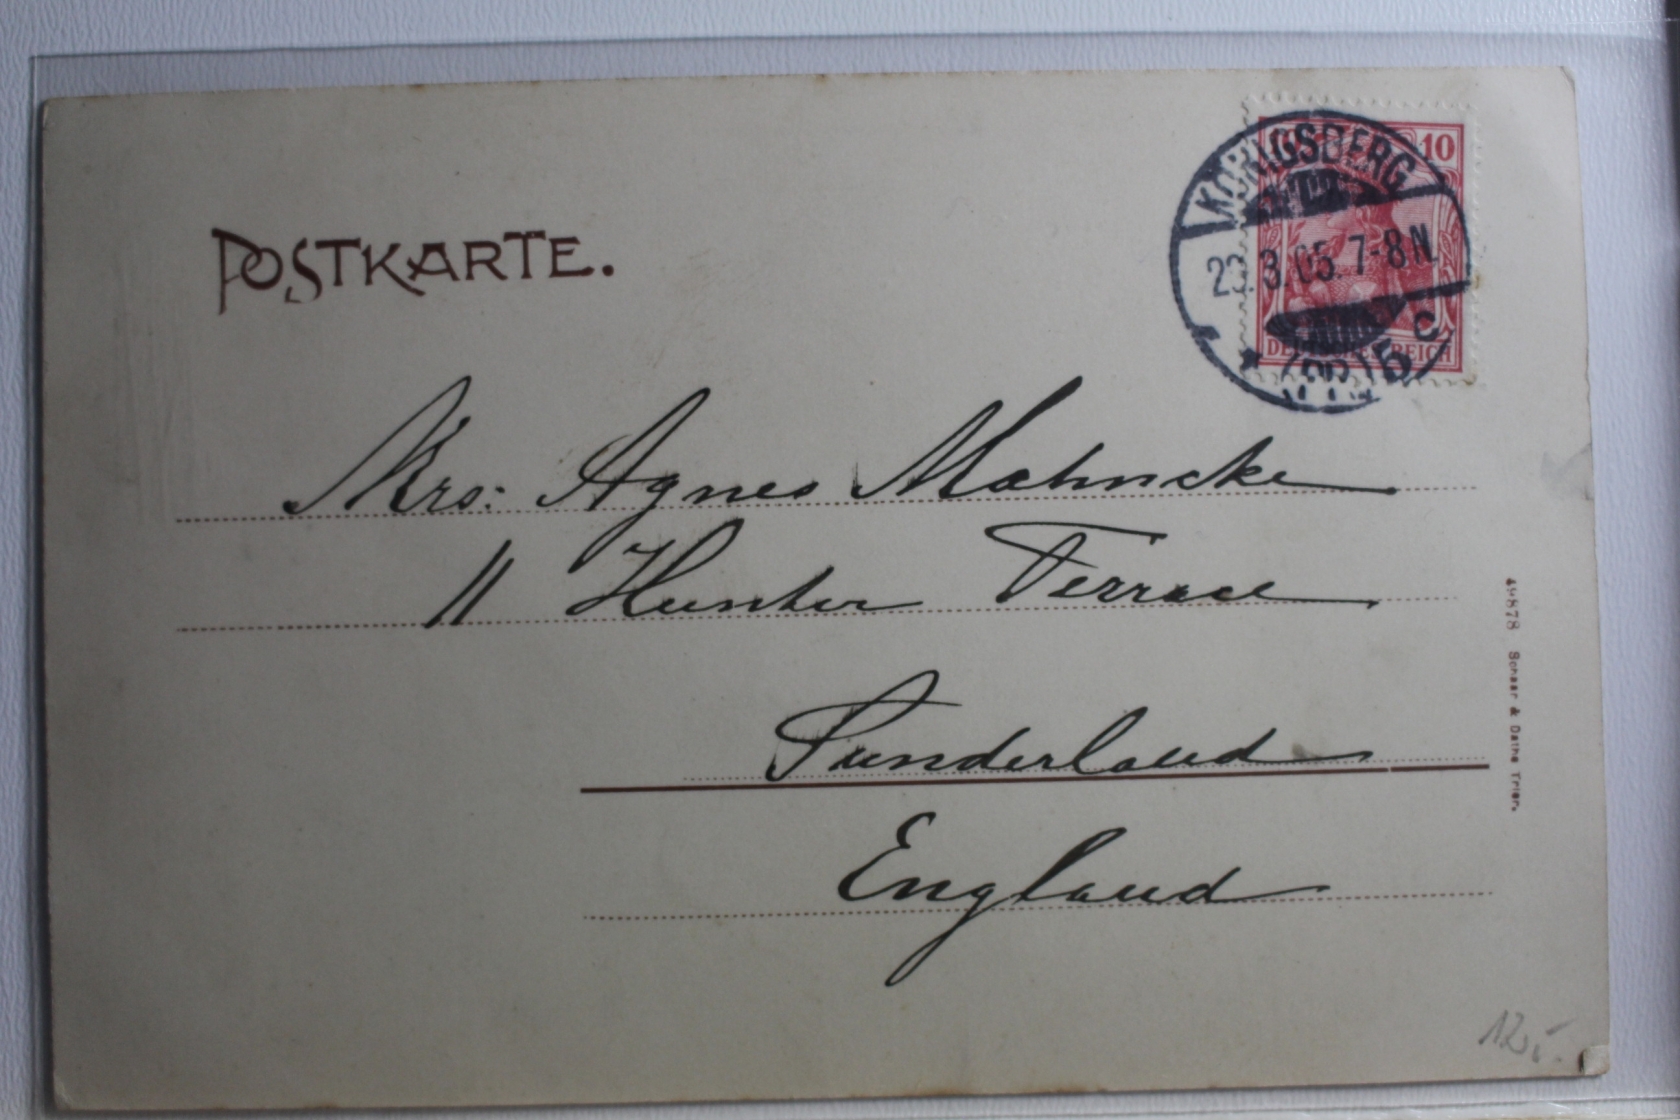 POSTKARTE.
10
KÖNIGSBERG
23.3.05.7-8N.
(PR) 5 c
REICH
Mrs: Agnes Mahncke
11 Hunter Terrace
Sunderland
England
49878 Schaar & Dathe Trier.
12,-